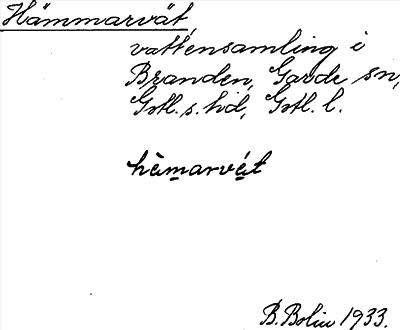 Hämmarvät,
vattensamling i
Branden, Garde sn,
Gotl. s. hd, Gotl. l.
hèmarvét
B. Bolin 1933.